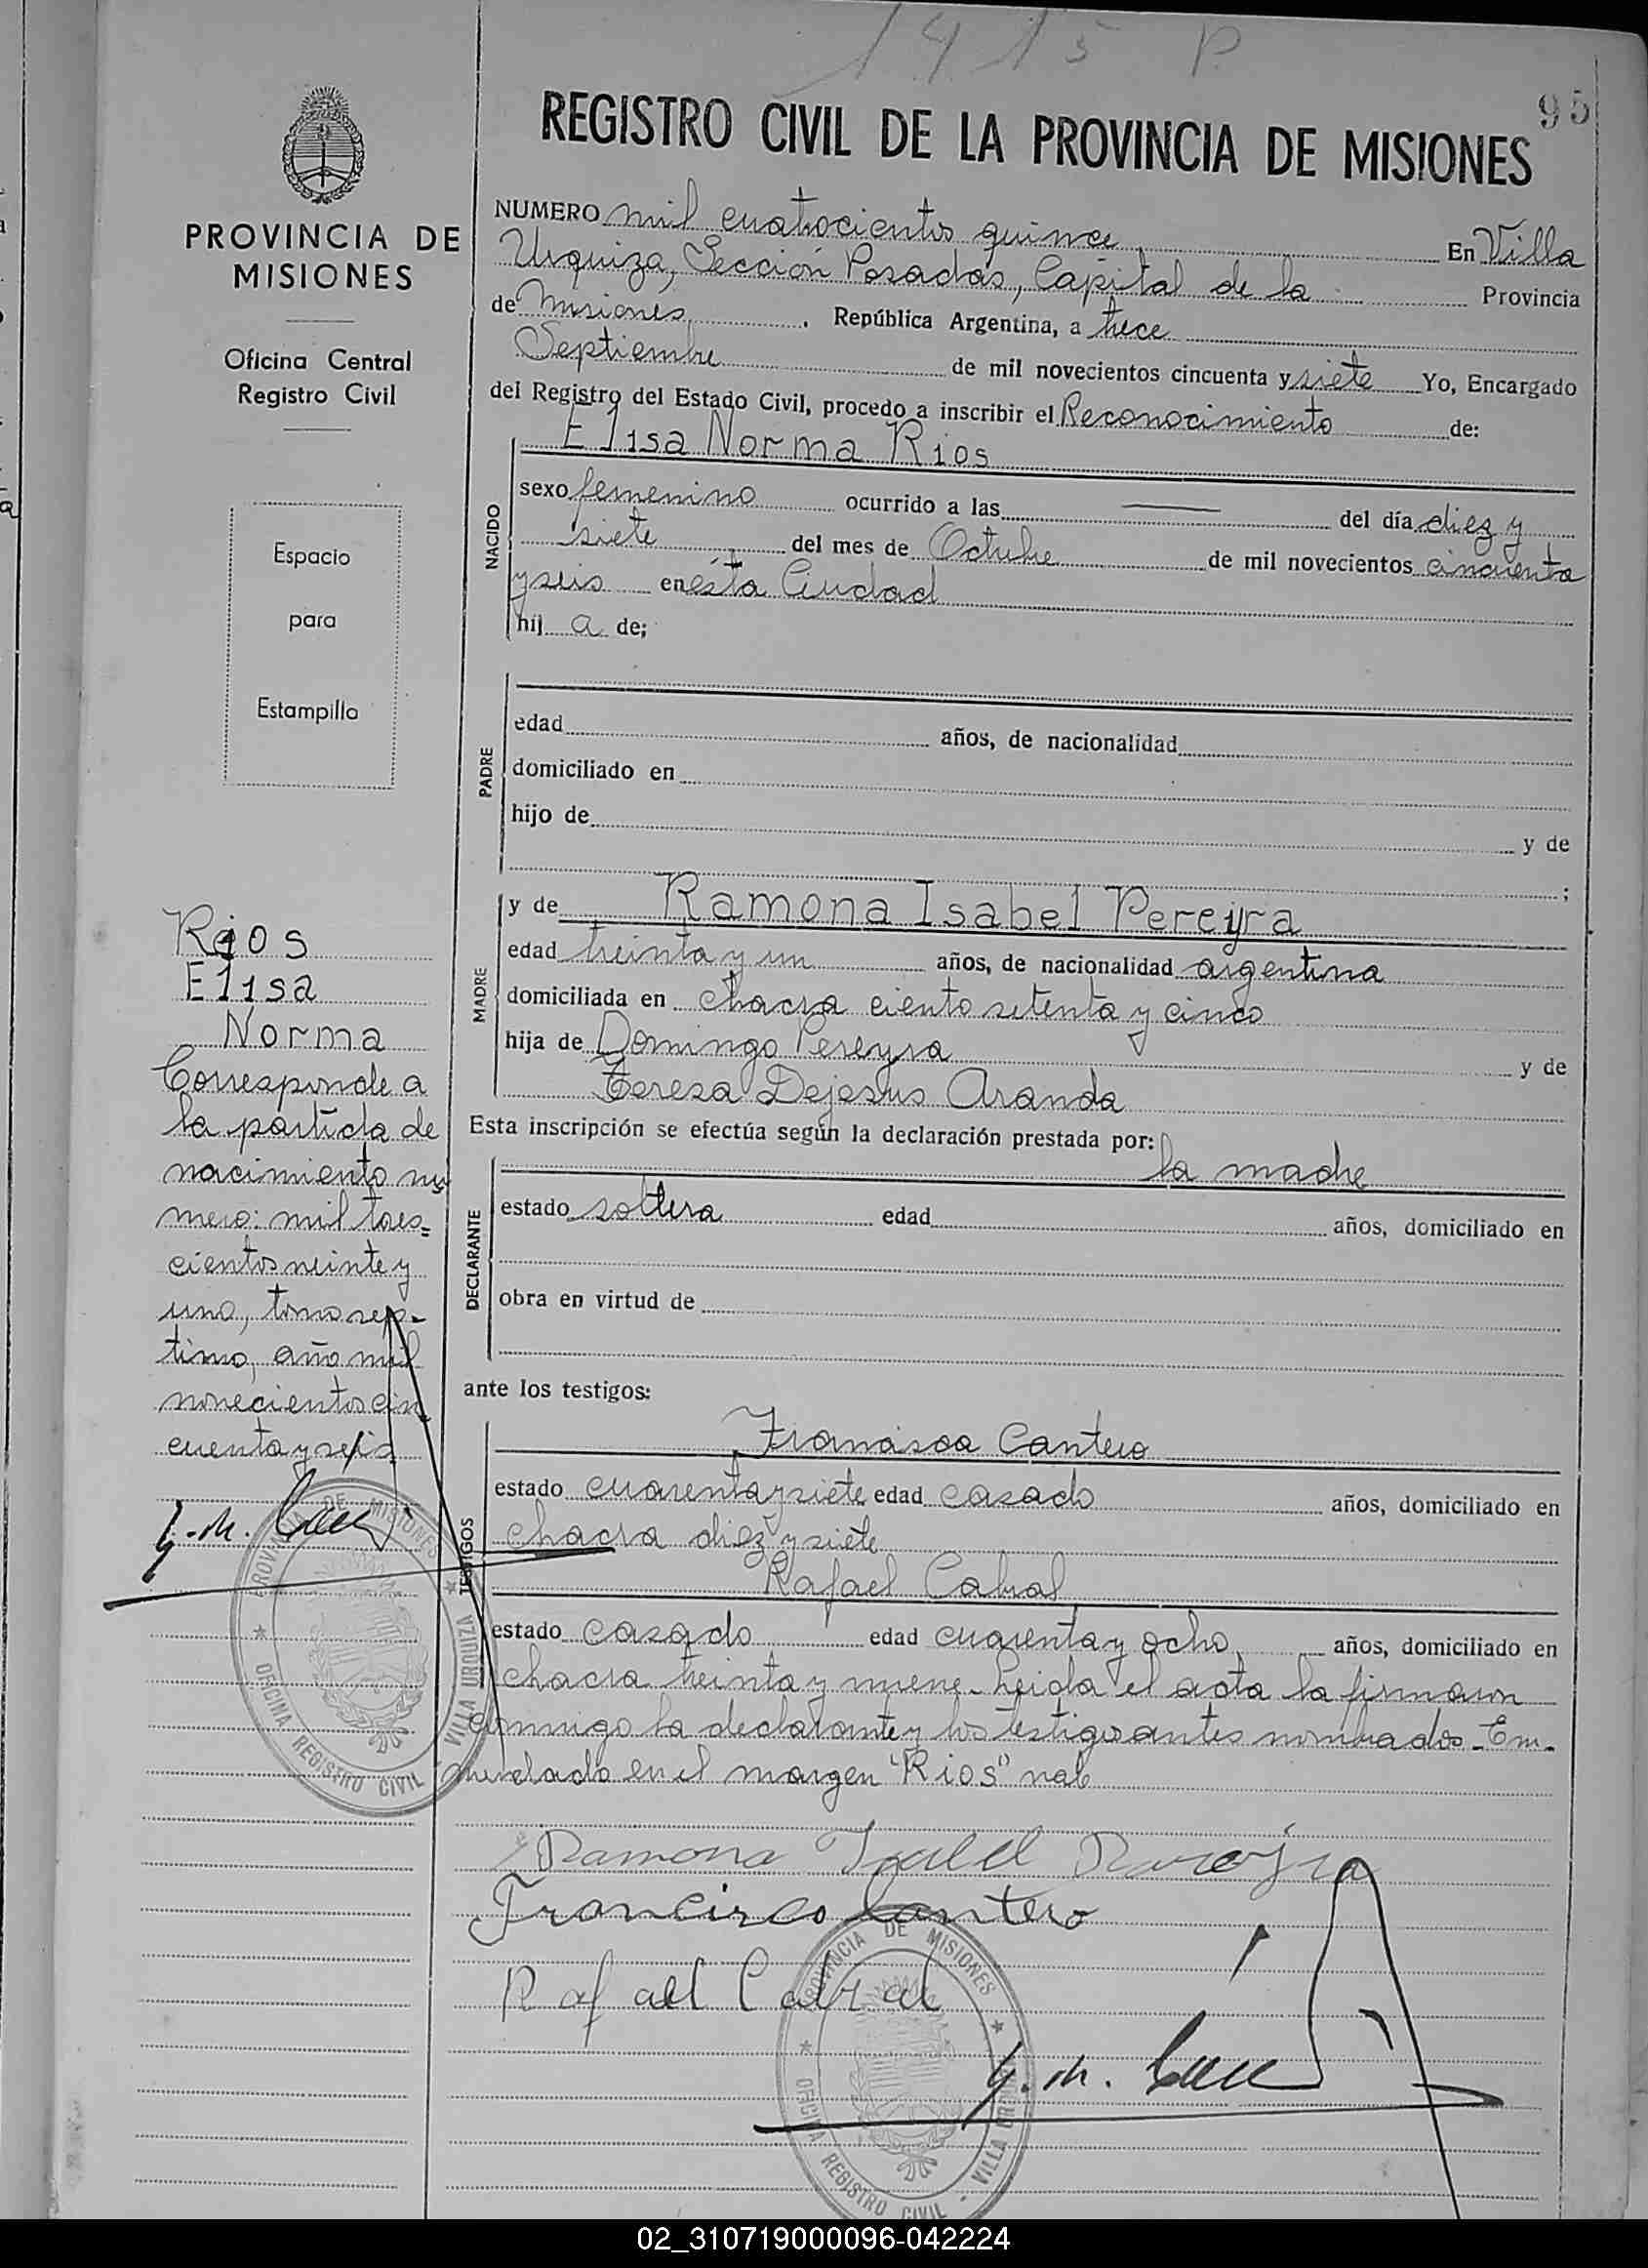 1415 P
95
REGISTRO CIVIL DE LA PROVINCIA DE MISIONES
PROVINCIA DE
MISIONES
Oficina Central
Registro Civil
Espacio
para
Estampilla
NUMERO mil cuatrocientos quince En Villa
Urquiza, Sección Posadas, Capital de la Provincia
de Misiones, República Argentina, a trece
Septiembre de mil novecientos cincuenta y siete Yo, Encargado
del Registro del Estado Civil, procedo a inscribir el Reconocimiento de:
NACIDO
Elisa Norma Rios
sexo femenino ocurrido a las — del día diez y
siete del mes de Octubre de mil novecientos cincuenta
y seis en ésta Ciudad
hij a de;
PADRE
edad años, de nacionalidad
domiciliado en
hijo de y de
;
MADRE
y de Ramona Isabel Pereyra
edad treinta y un años, de nacionalidad argentina
domiciliada en chacra ciento setenta y cinco
hija de Domingo Pereyra y de
Tereza Dejesus Aranda
Esta inscripción se efectúa según la declaración prestada por:
la madre
DECLARANTE
estado soltera edad años, domiciliado en
obra en virtud de
ante los testigos:
TESTIGOS
Francisca Cantero
estado cuarenta y siete edad casado años, domiciliado en
chacra diez y siete
Rafael Cabral
estado casado edad cuarenta y ocho años, domiciliado en
chacra treinta y nueve. Leida el acta la firmaron
conmigo la declarante y los testigos antes nombrados. En-
mendado en el margen "Rios" vale
Ramona Isabel Pareyra
Francisco Cantero
Rafael Cabral
Rios
Elisa
Norma
Corresponde a
la partida de
nacimiento nu
mero: mil tres=
cientos veinte y
uno, tomo sep-
timo, año mil
novecientos cin
cuenta y seis
PROVINCIA DE MISIONES
OFICINA REGISTRO CIVIL - VILLA URQUIZA
PROVINCIA DE MISIONES
OFICINA REGISTRO CIVIL - VILLA URQUIZA
02_310719000096-042224